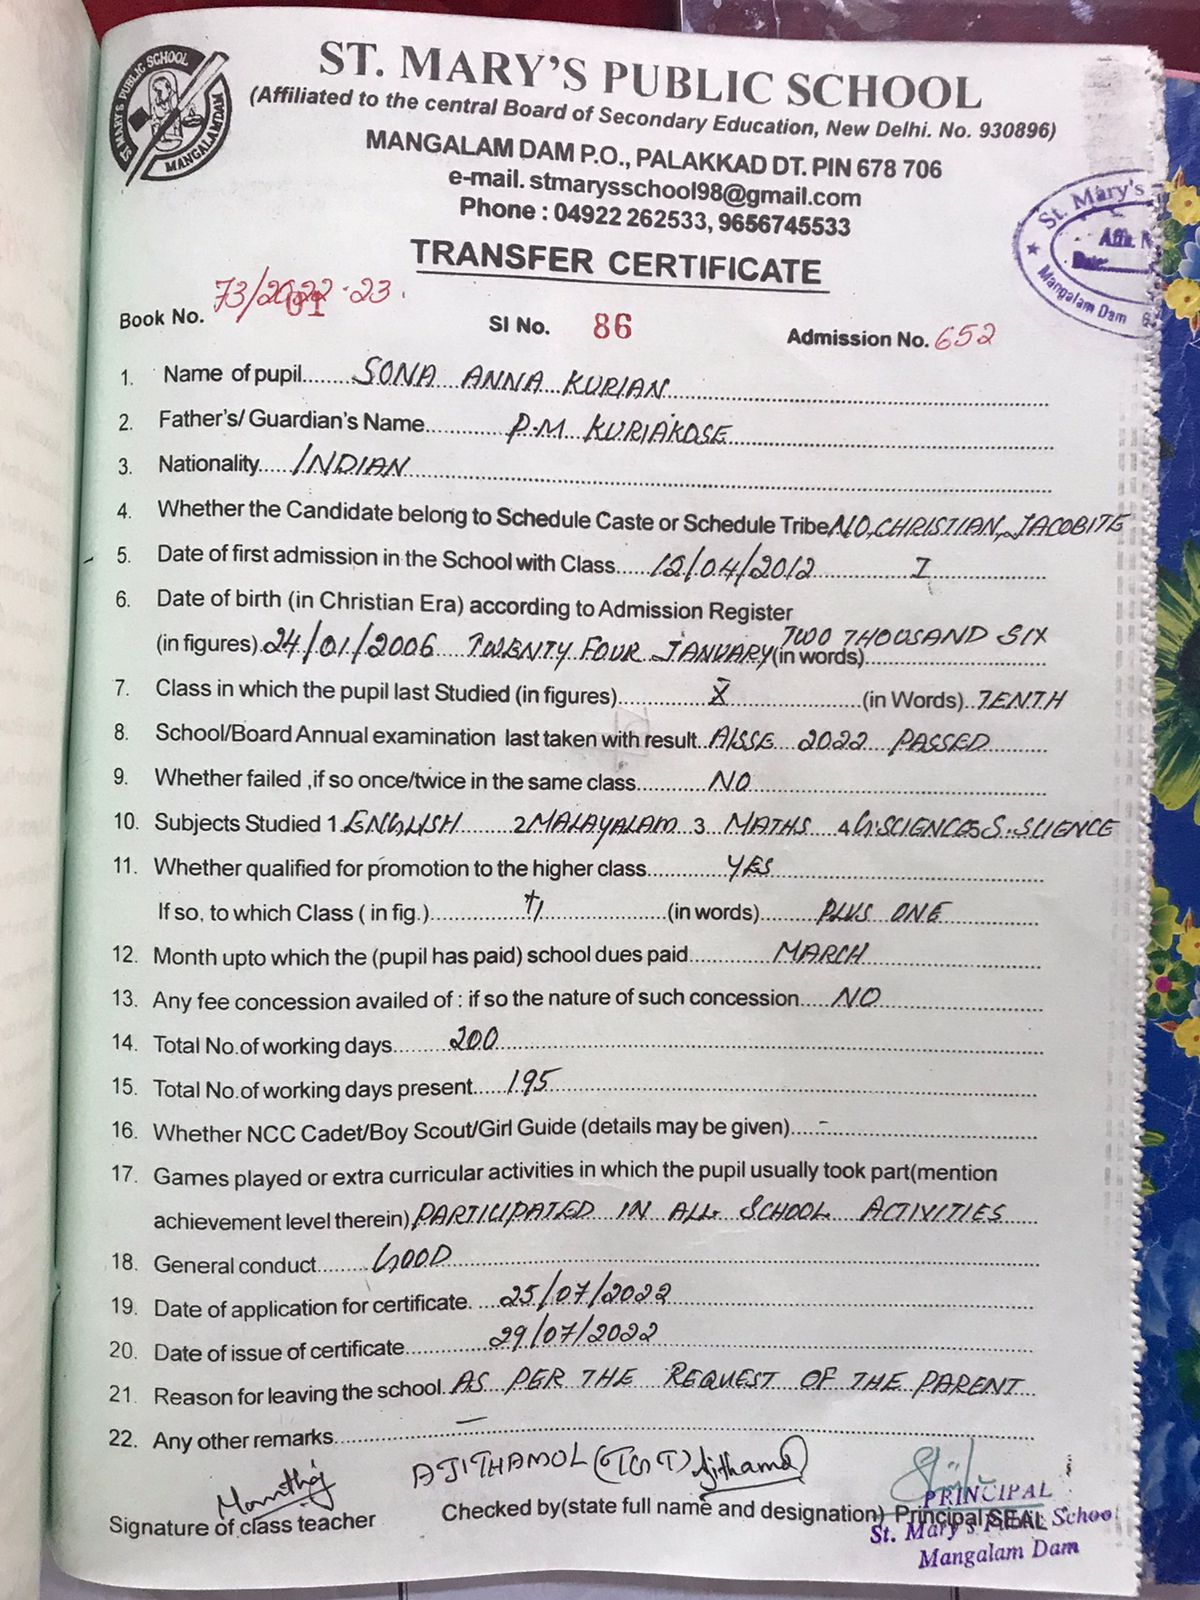 ST. MARY'S PUBLIC SCHOOL
MANGALAMDAM
ST. MARY'S PUBLIC SCHOOL
(Affiliated to the central Board of Secondary Education, New Delhi. No. 930896)
MANGALAM DAM P.O., PALAKKAD DT. PIN 678 706
e-mail. stmarysschool98@gmail.com
Phone : 04922 262533, 9656745533
St. Mary's
Affn. N
Date:
Mangalam Dam
TRANSFER CERTIFICATE
Book No. 73/2022-23. 01 Sl No. 86 Admission No. 652
1. Name of pupil SONA ANNA KURIAN
2. Father's/ Guardian's Name P.M KURIAKOSE
3. Nationality INDIAN
4. Whether the Candidate belong to Schedule Caste or Schedule Tribe NO, CHRISTIAN, JACOBITE
5. Date of first admission in the School with Class 12/04/2012 I
6. Date of birth (in Christian Era) according to Admission Register
(in figures) 24/01/2006 TWENTY FOUR JANUARY (in words) TWO THOUSAND SIX
7. Class in which the pupil last Studied (in figures) X (in Words) TENTH
8. School/Board Annual examination last taken with result AISSE 2022 PASSED
9. Whether failed ,if so once/twice in the same class NO
10. Subjects Studied 1. ENGLISH 2 MALAYALAM 3 MATHS 4 G.SCIENCE 5 S.SCIENCE
11. Whether qualified for promotion to the higher class YES
If so, to which Class ( in fig.) +1 (in words) PLUS ONE
12. Month upto which the (pupil has paid) school dues paid MARCH
13. Any fee concession availed of : if so the nature of such concession NO
14. Total No.of working days 200
15. Total No.of working days present 195
16. Whether NCC Cadet/Boy Scout/Girl Guide (details may be given) -
17. Games played or extra curricular activities in which the pupil usually took part(mention
achievement level therein) PARTICIPATED IN ALL SCHOOL ACTIVITIES
18. General conduct GOOD
19. Date of application for certificate. 25/07/2022
20. Date of issue of certificate 29/07/2022
21. Reason for leaving the school AS PER THE REQUEST OF THE PARENT
22. Any other remarks —
AJITHAMOL (TGT) Ajithamol
Signature of class teacher Checked by(state full name and designation) Principal SEAL
PRINCIPAL
St. Mary's Public School
Mangalam Dam